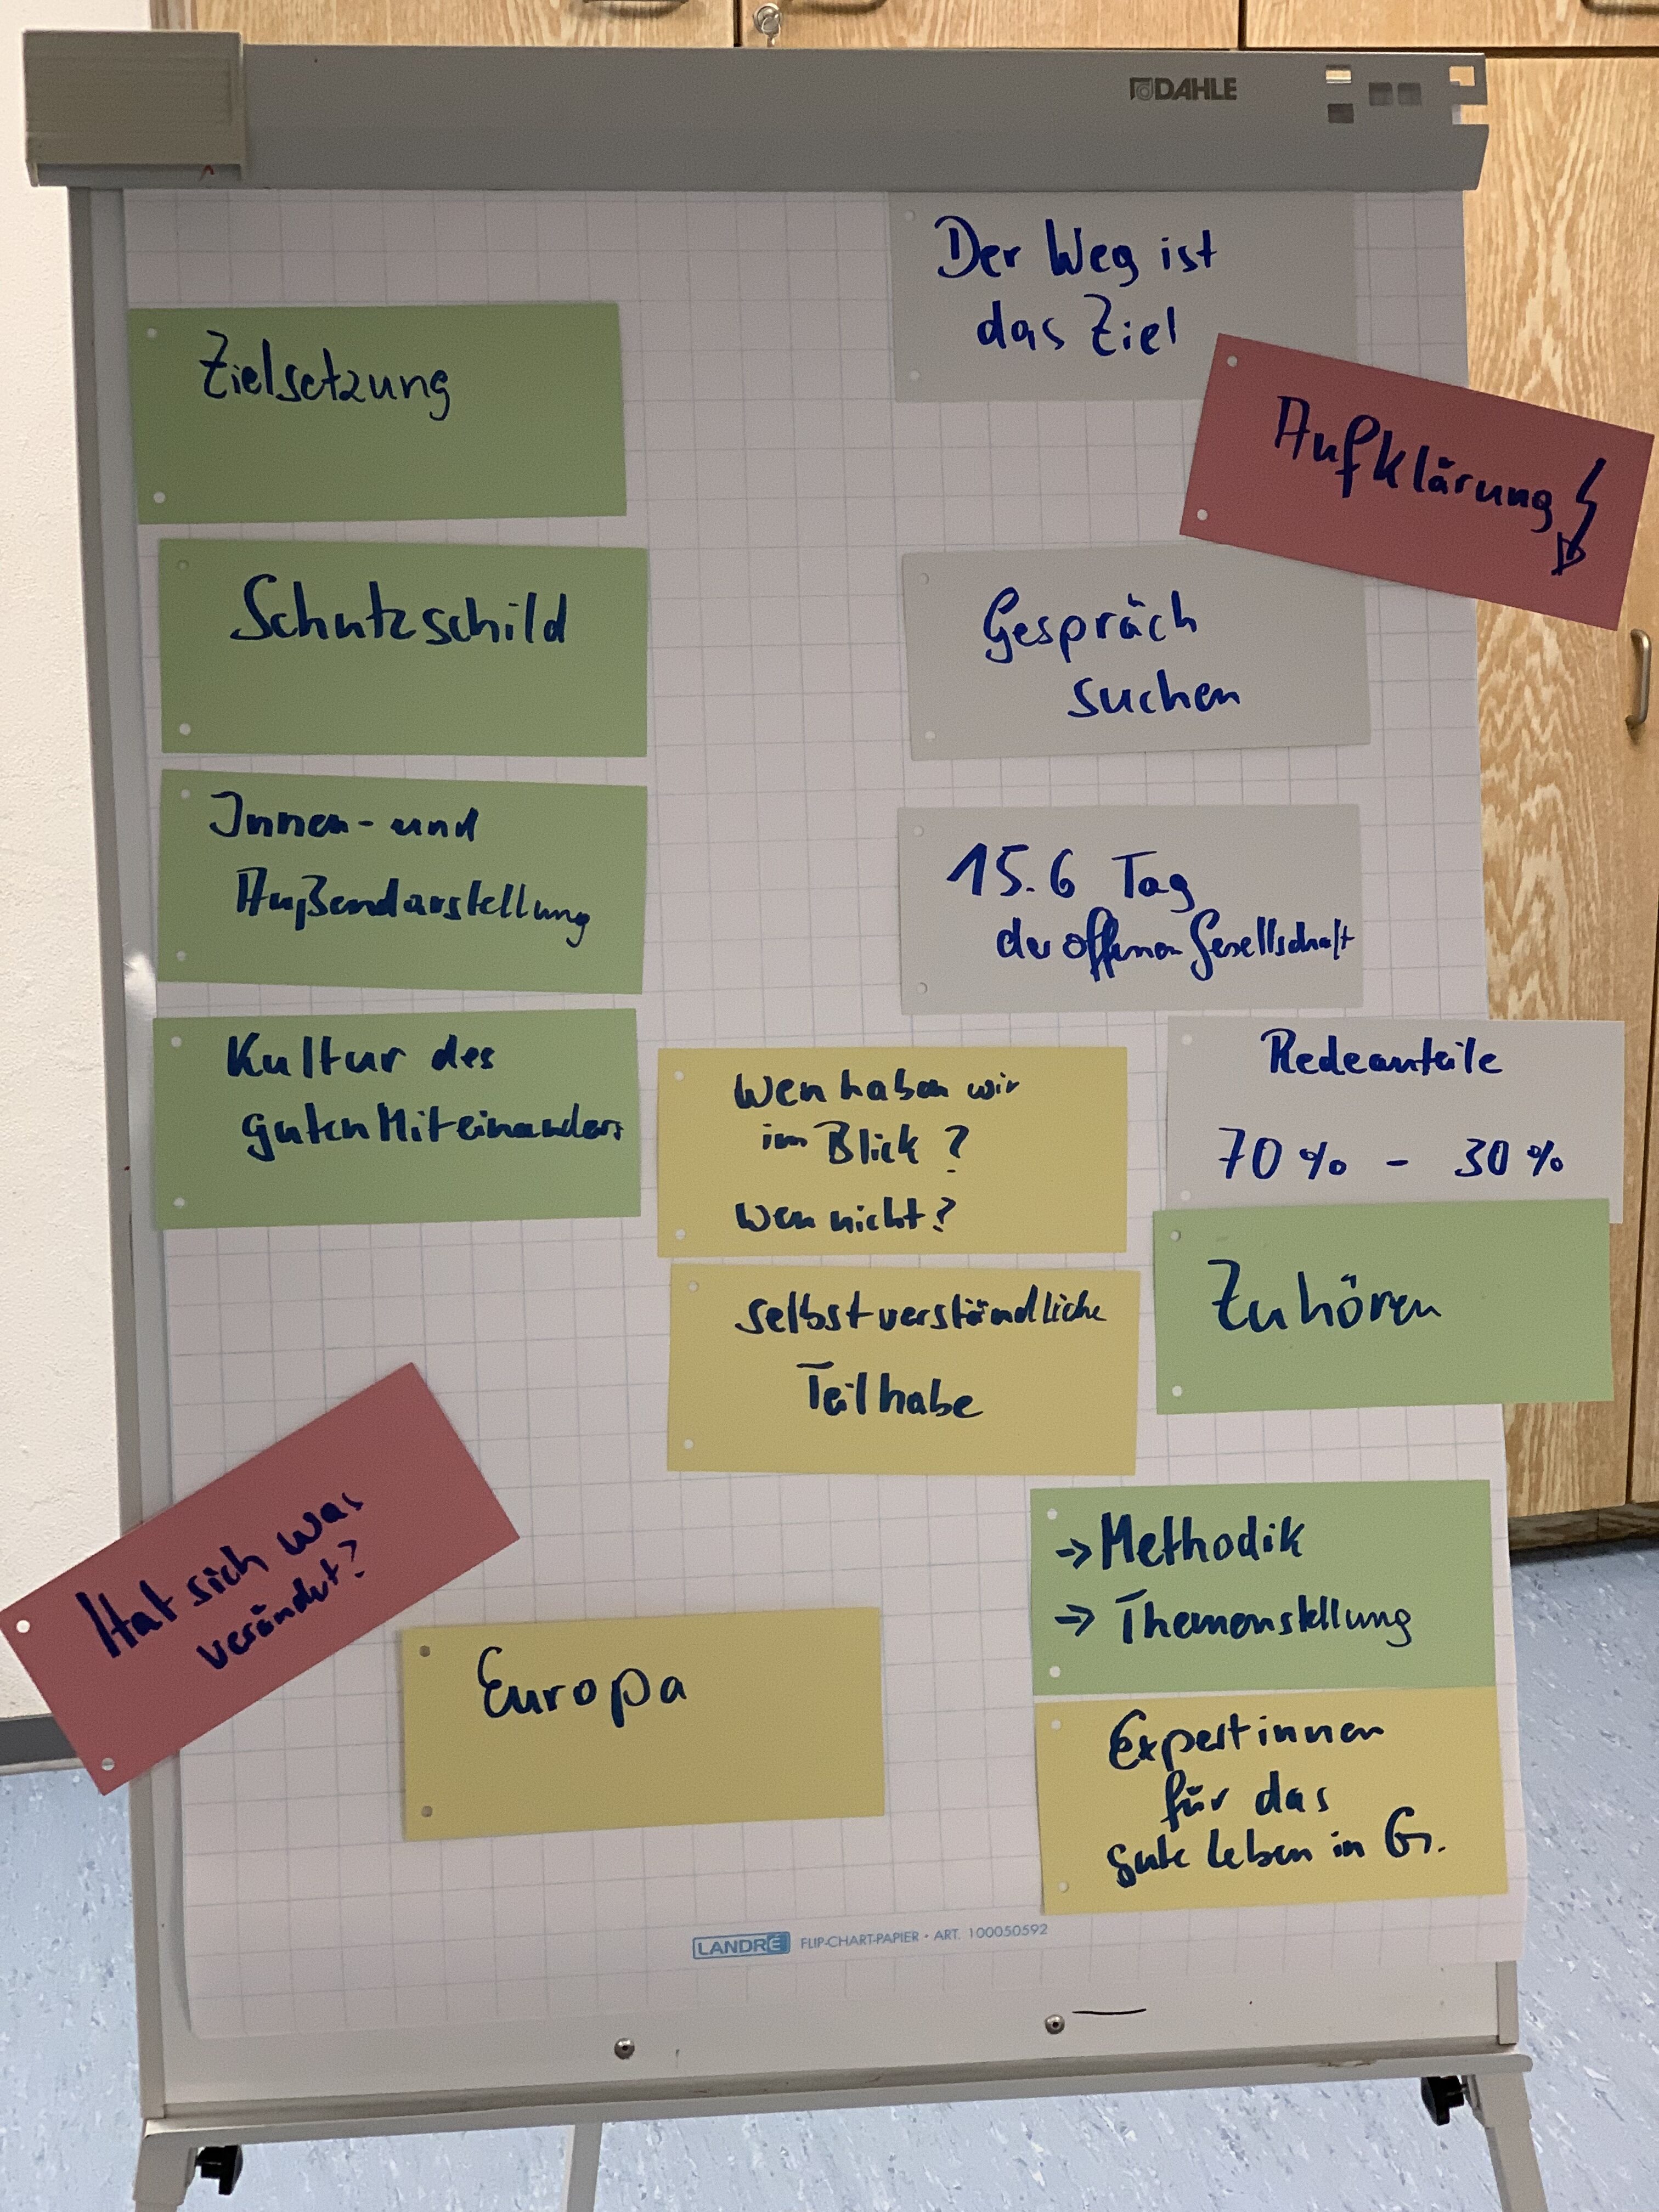 DAHLE
Der Weg ist
das Ziel
Zielsetzung
Aufklärung
Schutzschild
Gespräch
suchen
Innen- und
Außendarstellung
15.6 Tag
der offenen Gesellschaft
Kultur des
guten Miteinanders
Wen haben wir
im Blick?
Wen nicht?
Redeanteile
70% - 30%
Zuhören
selbstverständliche
Teilhabe
Hat sich was
verändert?
→ Methodik
→ Themenstellung
Europa
Expertinnen
für das
gute Leben in G.
LANDRÉ FLIP-CHART-PAPIER • ART. 100050592